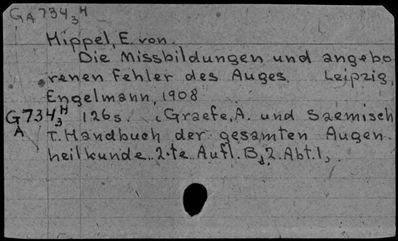 GA7343H
Hippel, E. von.
Die Missbildungen und angebo
renen Fehler des Auges. Leipzig,
Engelmann, 1908
G7343H 126s. (Graefe, A. und Saemisch
A T. Handbuch der gesamten Augen
heilkunde. 2.te Aufl. B, 2. Abt. 1,